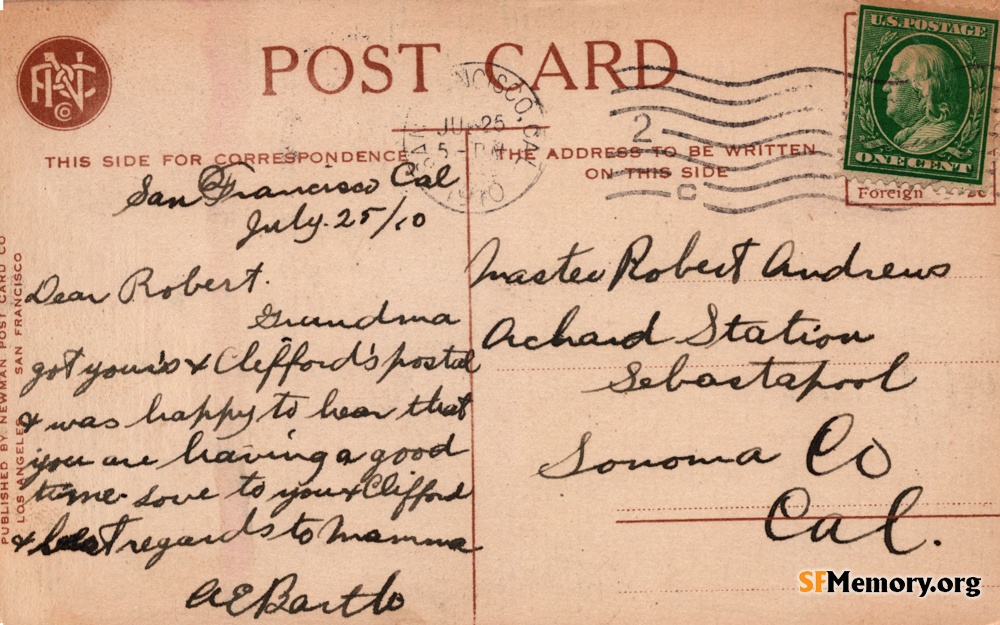 POST CARD
THIS SIDE FOR CORRESPONDENCE
THE ADDRESS TO BE WRITTEN
ON THIS SIDE
U.S. POSTAGE
ONE CENT
Foreign 2c
SAN FRANCISCO, CAL.
JUL 25
5 - PM
1910
2
C
San Francisco Cal
July. 25/10
Dear Robert.
Grandma
got your's & Clefford's postal
& was happy to hear that
you are having a good
time. Love to you & Clifford
& best regards to Mamma
A E Bartlo
Master Robert Andrews
Archard Station
Sebastapool
Sonoma Co
Cal.
PUBLISHED BY NEWMAN POST CARD CO
LOS ANGELES SAN FRANCISCO
SFMemory.org